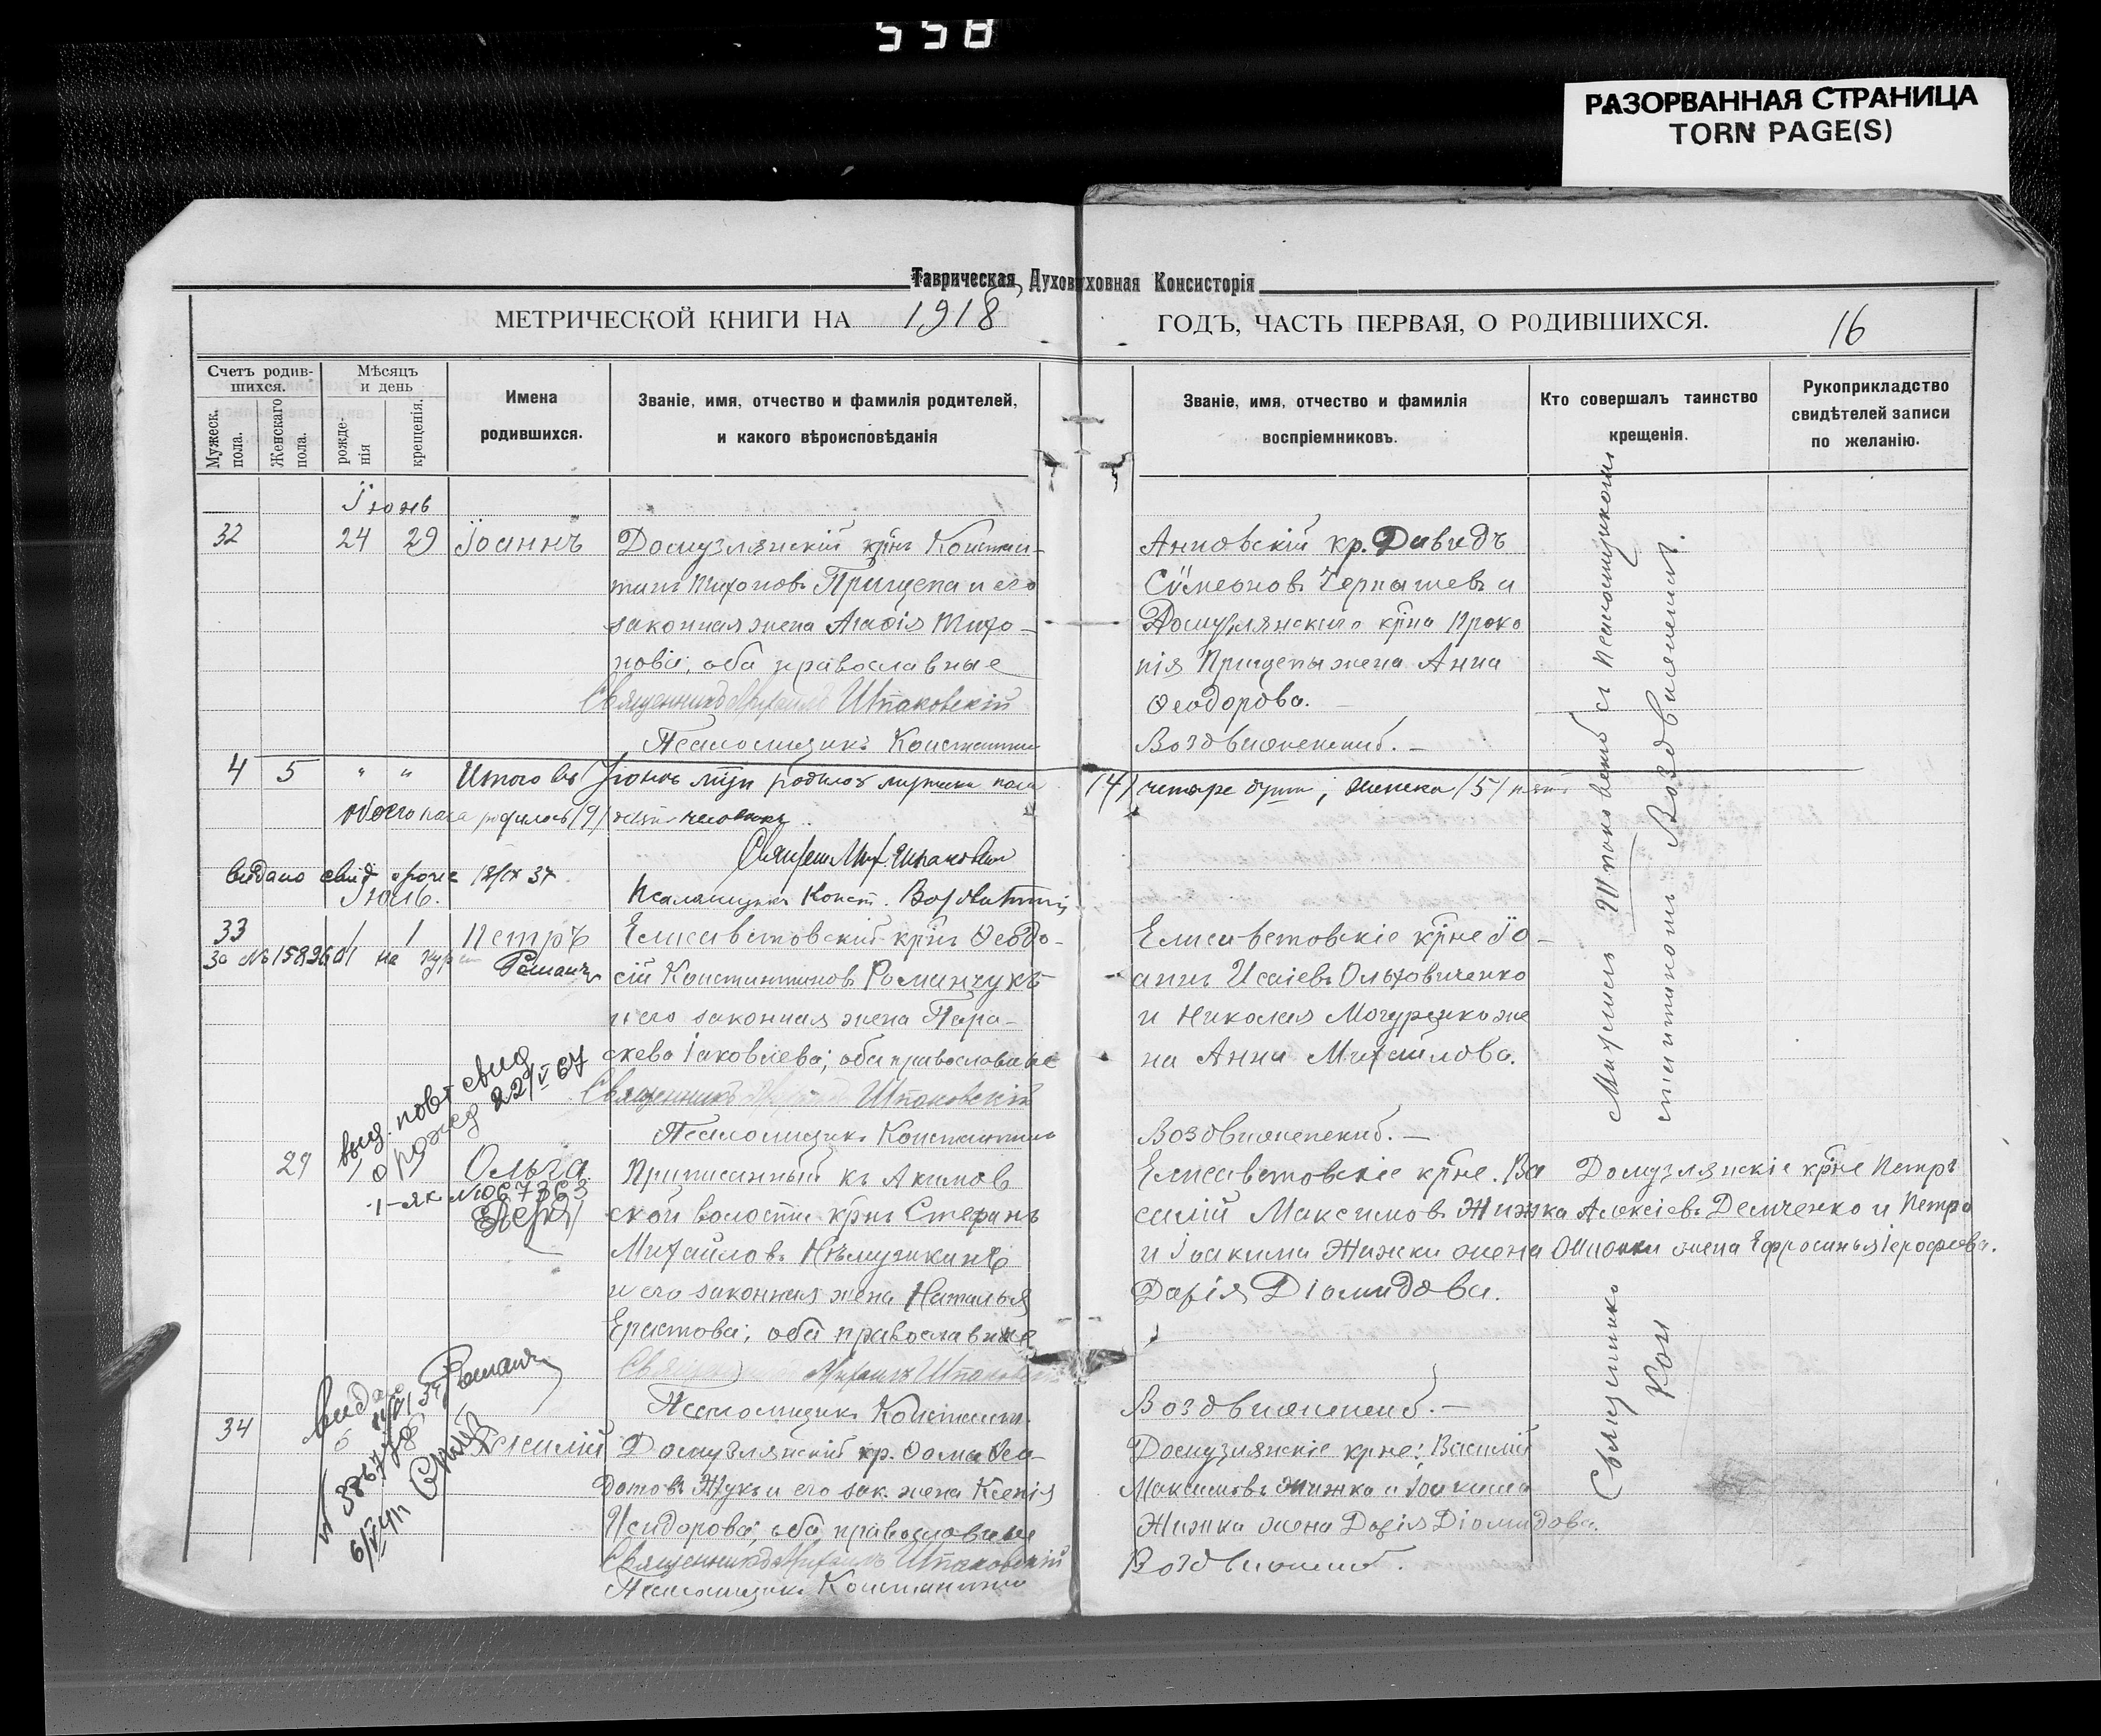 558
РАЗОРВАННАЯ СТРАНИЦА
TORN PAGE(S)
Таврическая Духов уховная Консисторія
МЕТРИЧЕСКОЙ КНИГИ НА 1918 ГОДЪ, ЧАСТЬ ПЕРВАЯ, О РОДИВШИХСЯ. 16
Счетъ родив-
шихся.
Мужеск. пола.
Женскаго пола.
Мѣсяцъ
и день
рожде-
нія
крещенія.
Имена
родившихся.
Званіе, имя, отчество и фамилія родителей,
и какого вѣроисповѣданія
Званіе, имя, отчество и фамилія
воспріемниковъ.
Кто совершалъ таинство
крещенія.
Рукоприкладство
свидѣтелей записи
по желанію.
Іюнь
32 24 29 Іоаннъ
Домузлянскій крнъ Констан-
тинъ Тихоновъ Прищепа и его
законная жена Агафія Тихо-
нова, оба православные
Священникъ Михаилъ Шпаковскій
Псаломщикъ Константинъ
Анновскій кр. Давидъ
Сѵмеоновъ Чернышевъ и
Домузлянскаго крна Проко
пія Прищепы жена Анна
Ѳеодорова.
Воздвиженскій. —
4 5 " " Итого въ Іюнь мцѣ родилось мужска пола (4) четыре души, женска (5) пять
обоего пола родилось (9) человѣкъ.
Священ. Мих. Шпаковскій
видано свид. 37
Іюль.
Псаломщикъ Конст. Воздвиженскій
33 1 1 Петръ
за № 158260
Елисаветовскій крнъ Ѳеодо-
сій Константиновъ Романчукъ
и его законная жена Пара-
скева Іаковлева; оба православные
Священникъ Михаилъ Шпаковскій
Псаломщикъ Константинъ
Елисаветовскіе крне Іо-
аннъ Исаіевъ Ольховиченко
и Николая жe
на Анна Михайлова.
Воздвиженскій. —
выд. повт свид
о рожд 22/V 67
1-як № 067363
29 Ольга
Приписанный къ Акимов
ской волости крнъ Стефанъ
Михайловъ
и его законная жена Наталья
Ерастова; оба православные
Священникъ Михаилъ Шпаковскій
Псаломщикъ Констант.
Елисаветовскіе крне. Ва
силій Максимовъ Жижка
и Іоакима Жижки жена
Дарія Діомидова.
Домузлянскіе крне Петръ
Алексіевъ Демченко и Петра
жена Ефросинья Іерофеева.
Воздвиженскій. —
34 6 8 Василій
Домузлянскій кр. Ѳома Ѳео-
дотовъ Жукъ и его зак. жена Ксенія
Исидорова, оба православные
Священникъ Михаилъ Шпаковскій
Псаломщикъ Константинъ
Домузлянскіе крне: Василій
Максимовъ Жижка и Іоакима
Жижки жена Дарія Діомидова.
Воздвиженскій.
Священникъ Михаилъ Шпаковскій съ псаломщикомъ
Константиномъ Воздвиженскимъ.